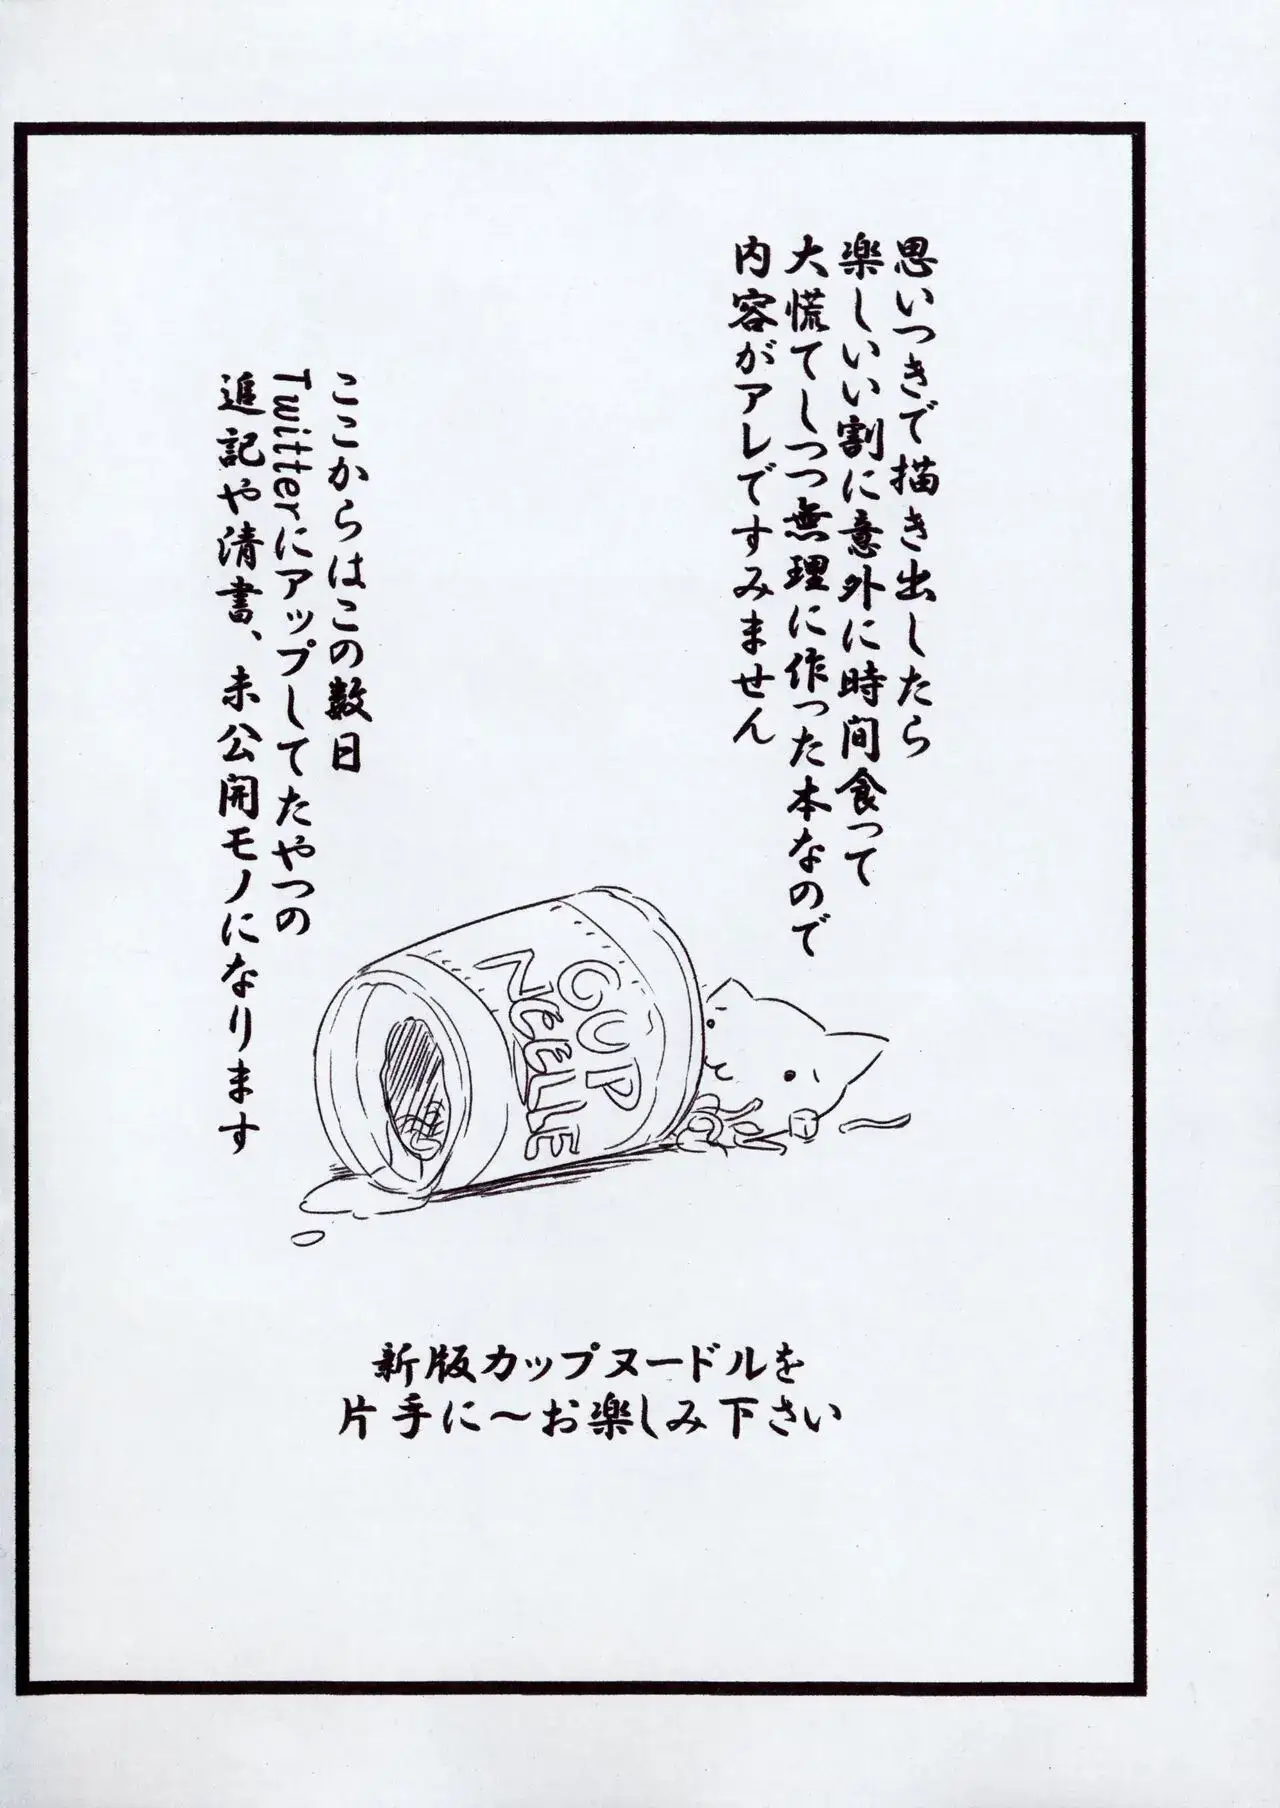 思いつきで描き出したら
楽しいい割に意外に時間食って
大慌てしつつ無理に作った本なので
内容がアレですみません
ここからはこの数日
Twitterにアップしてたやつの
追記や清書、未公開モノになります
CUP
NEELLE
新版カップヌードルを
片手に～お楽しみ下さい